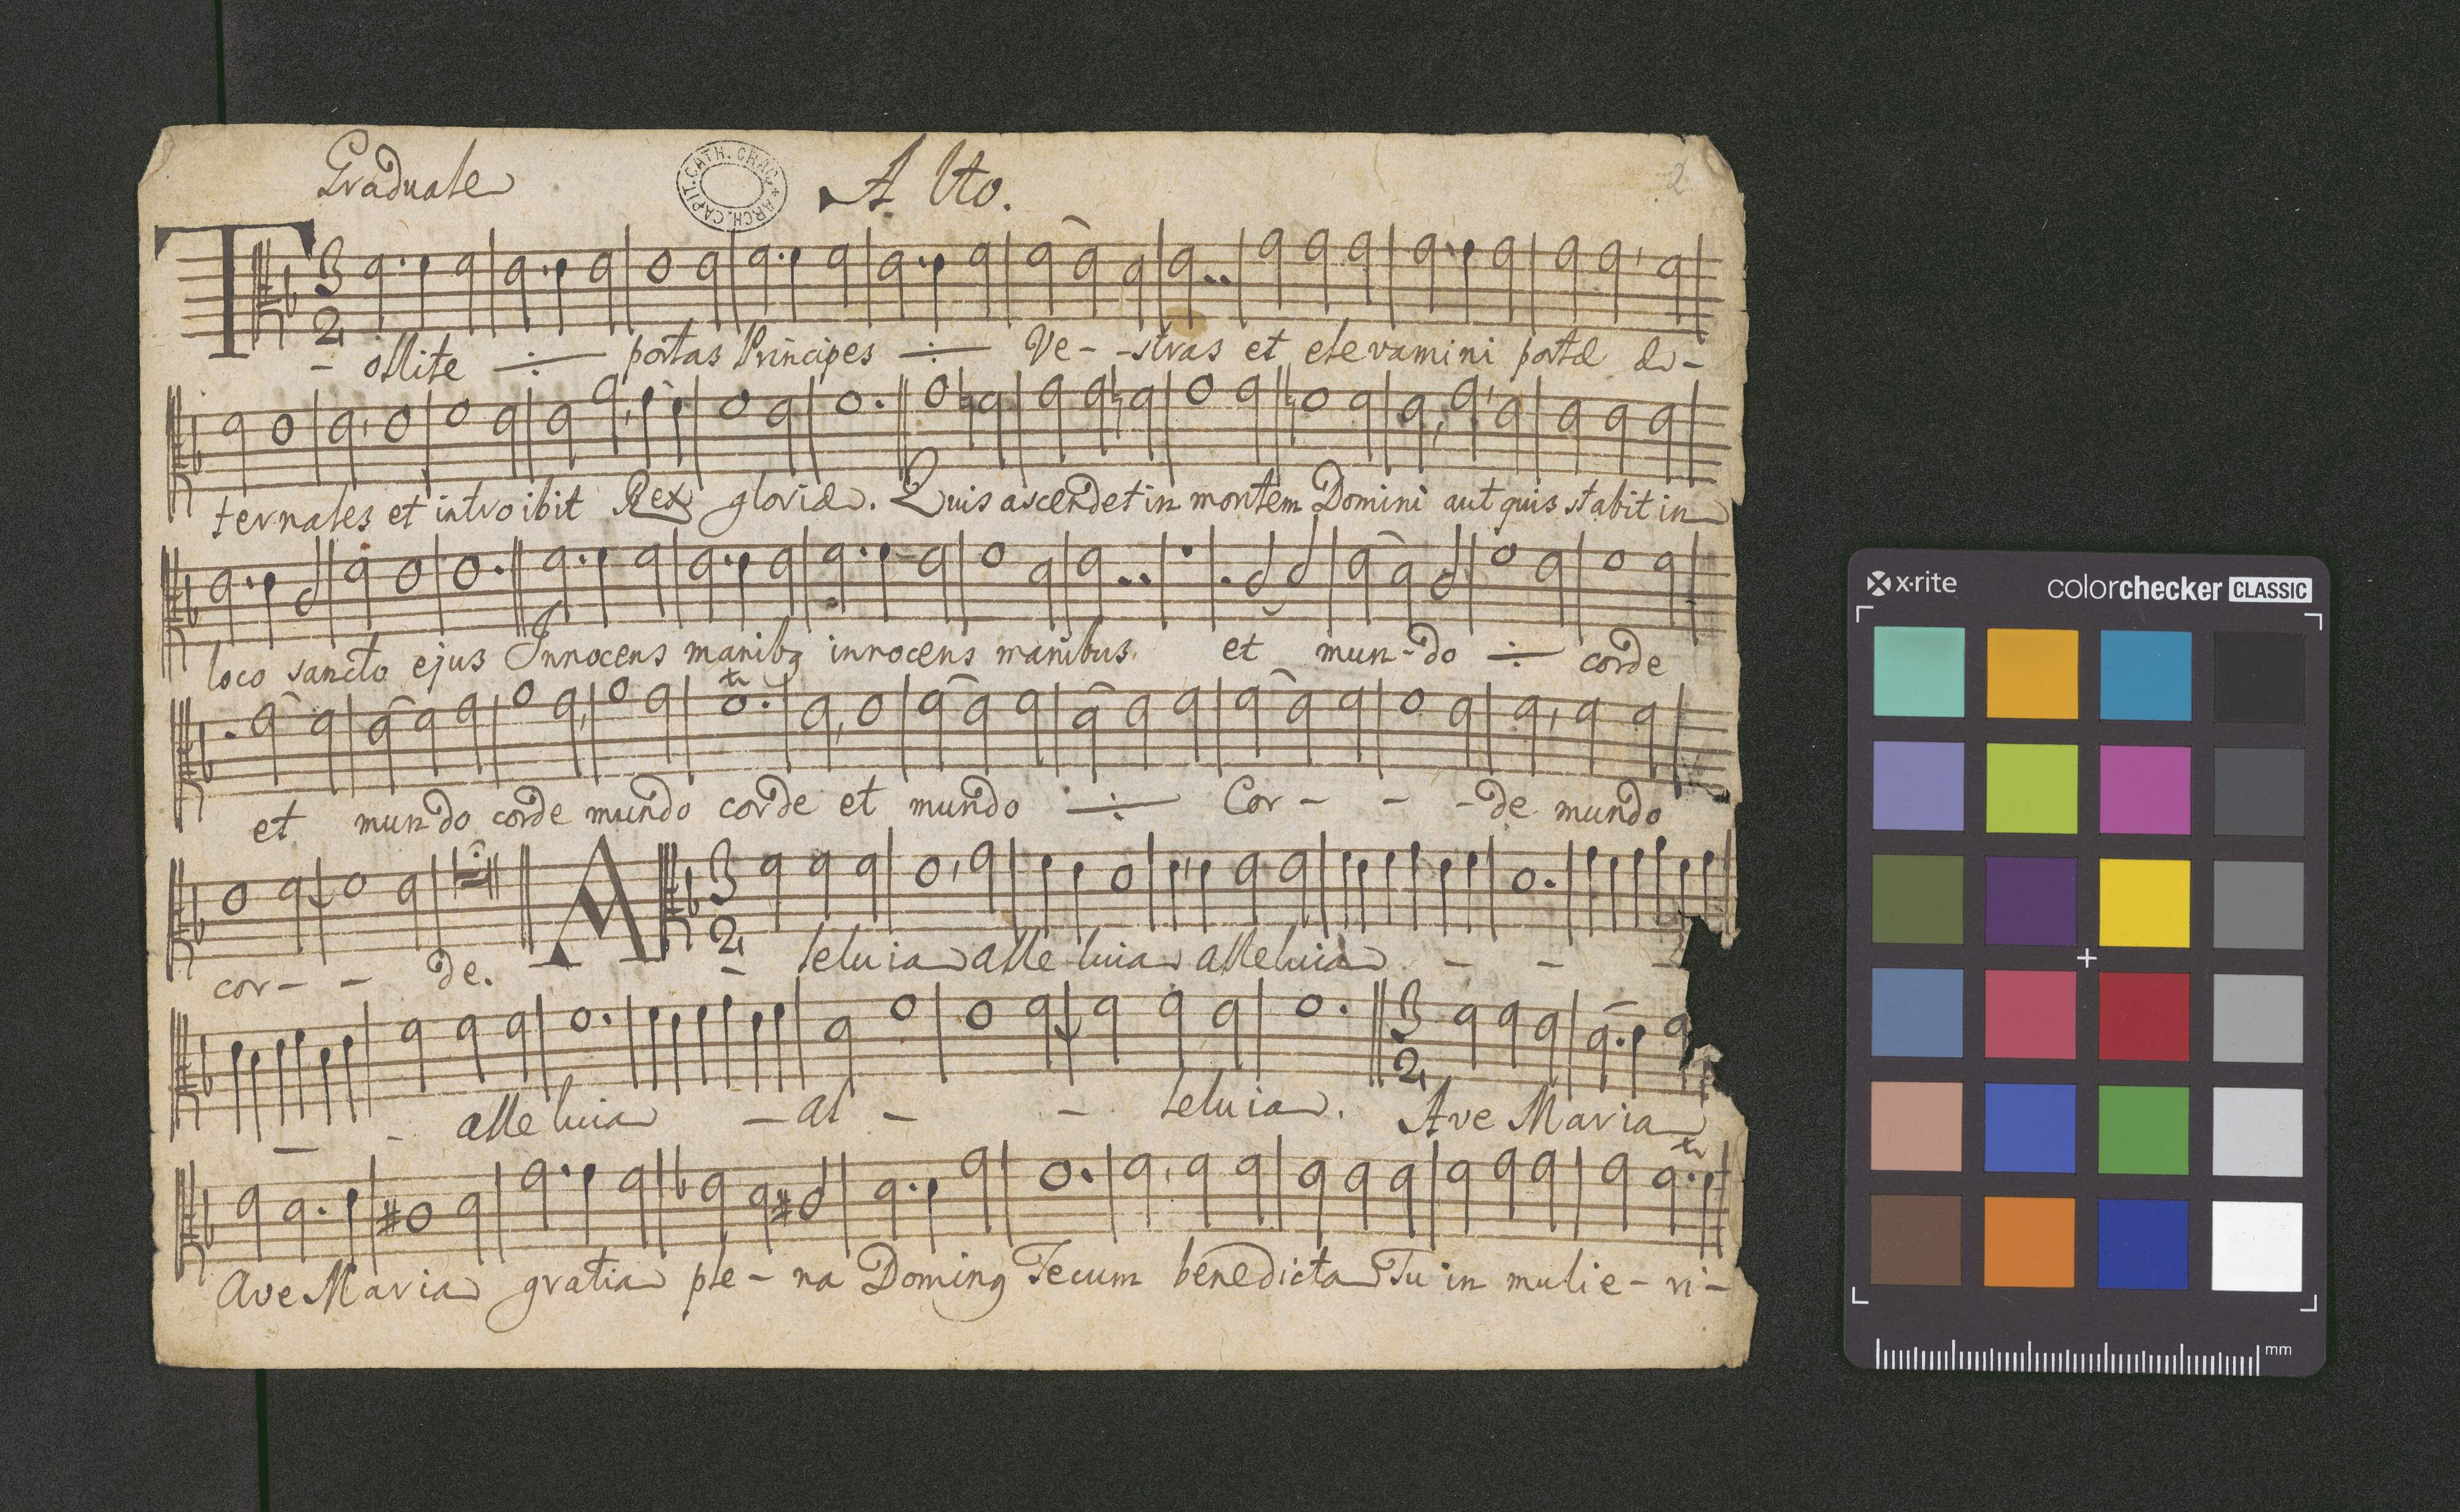 Graduale
CAPIT. CATH. CRAC. ARCH.
Alto.
2
3
2
T- ollite ÷ portas Principes ÷ Ve- -stras et elevamini portæ æ-
ternales et introibit Rex gloriæ. Quis ascendet in montem Domini aut quis stabit in
loco sancto ejus Innocens manibq innocens manibus. et mun-do ÷ corde
tr
et mundo corde mundo corde et mundo ÷ Cor - - -de mundo
3
2
cor- - de. A - leluia alleluia alleluia - - -
3
2
- - alleluia - al - - leluia. Ave Maria
tr
Ave Maria gratia ple- na Dominq Tecum benedicta Tu in mulie- ri-
x-rite
colorchecker CLASSIC
mm